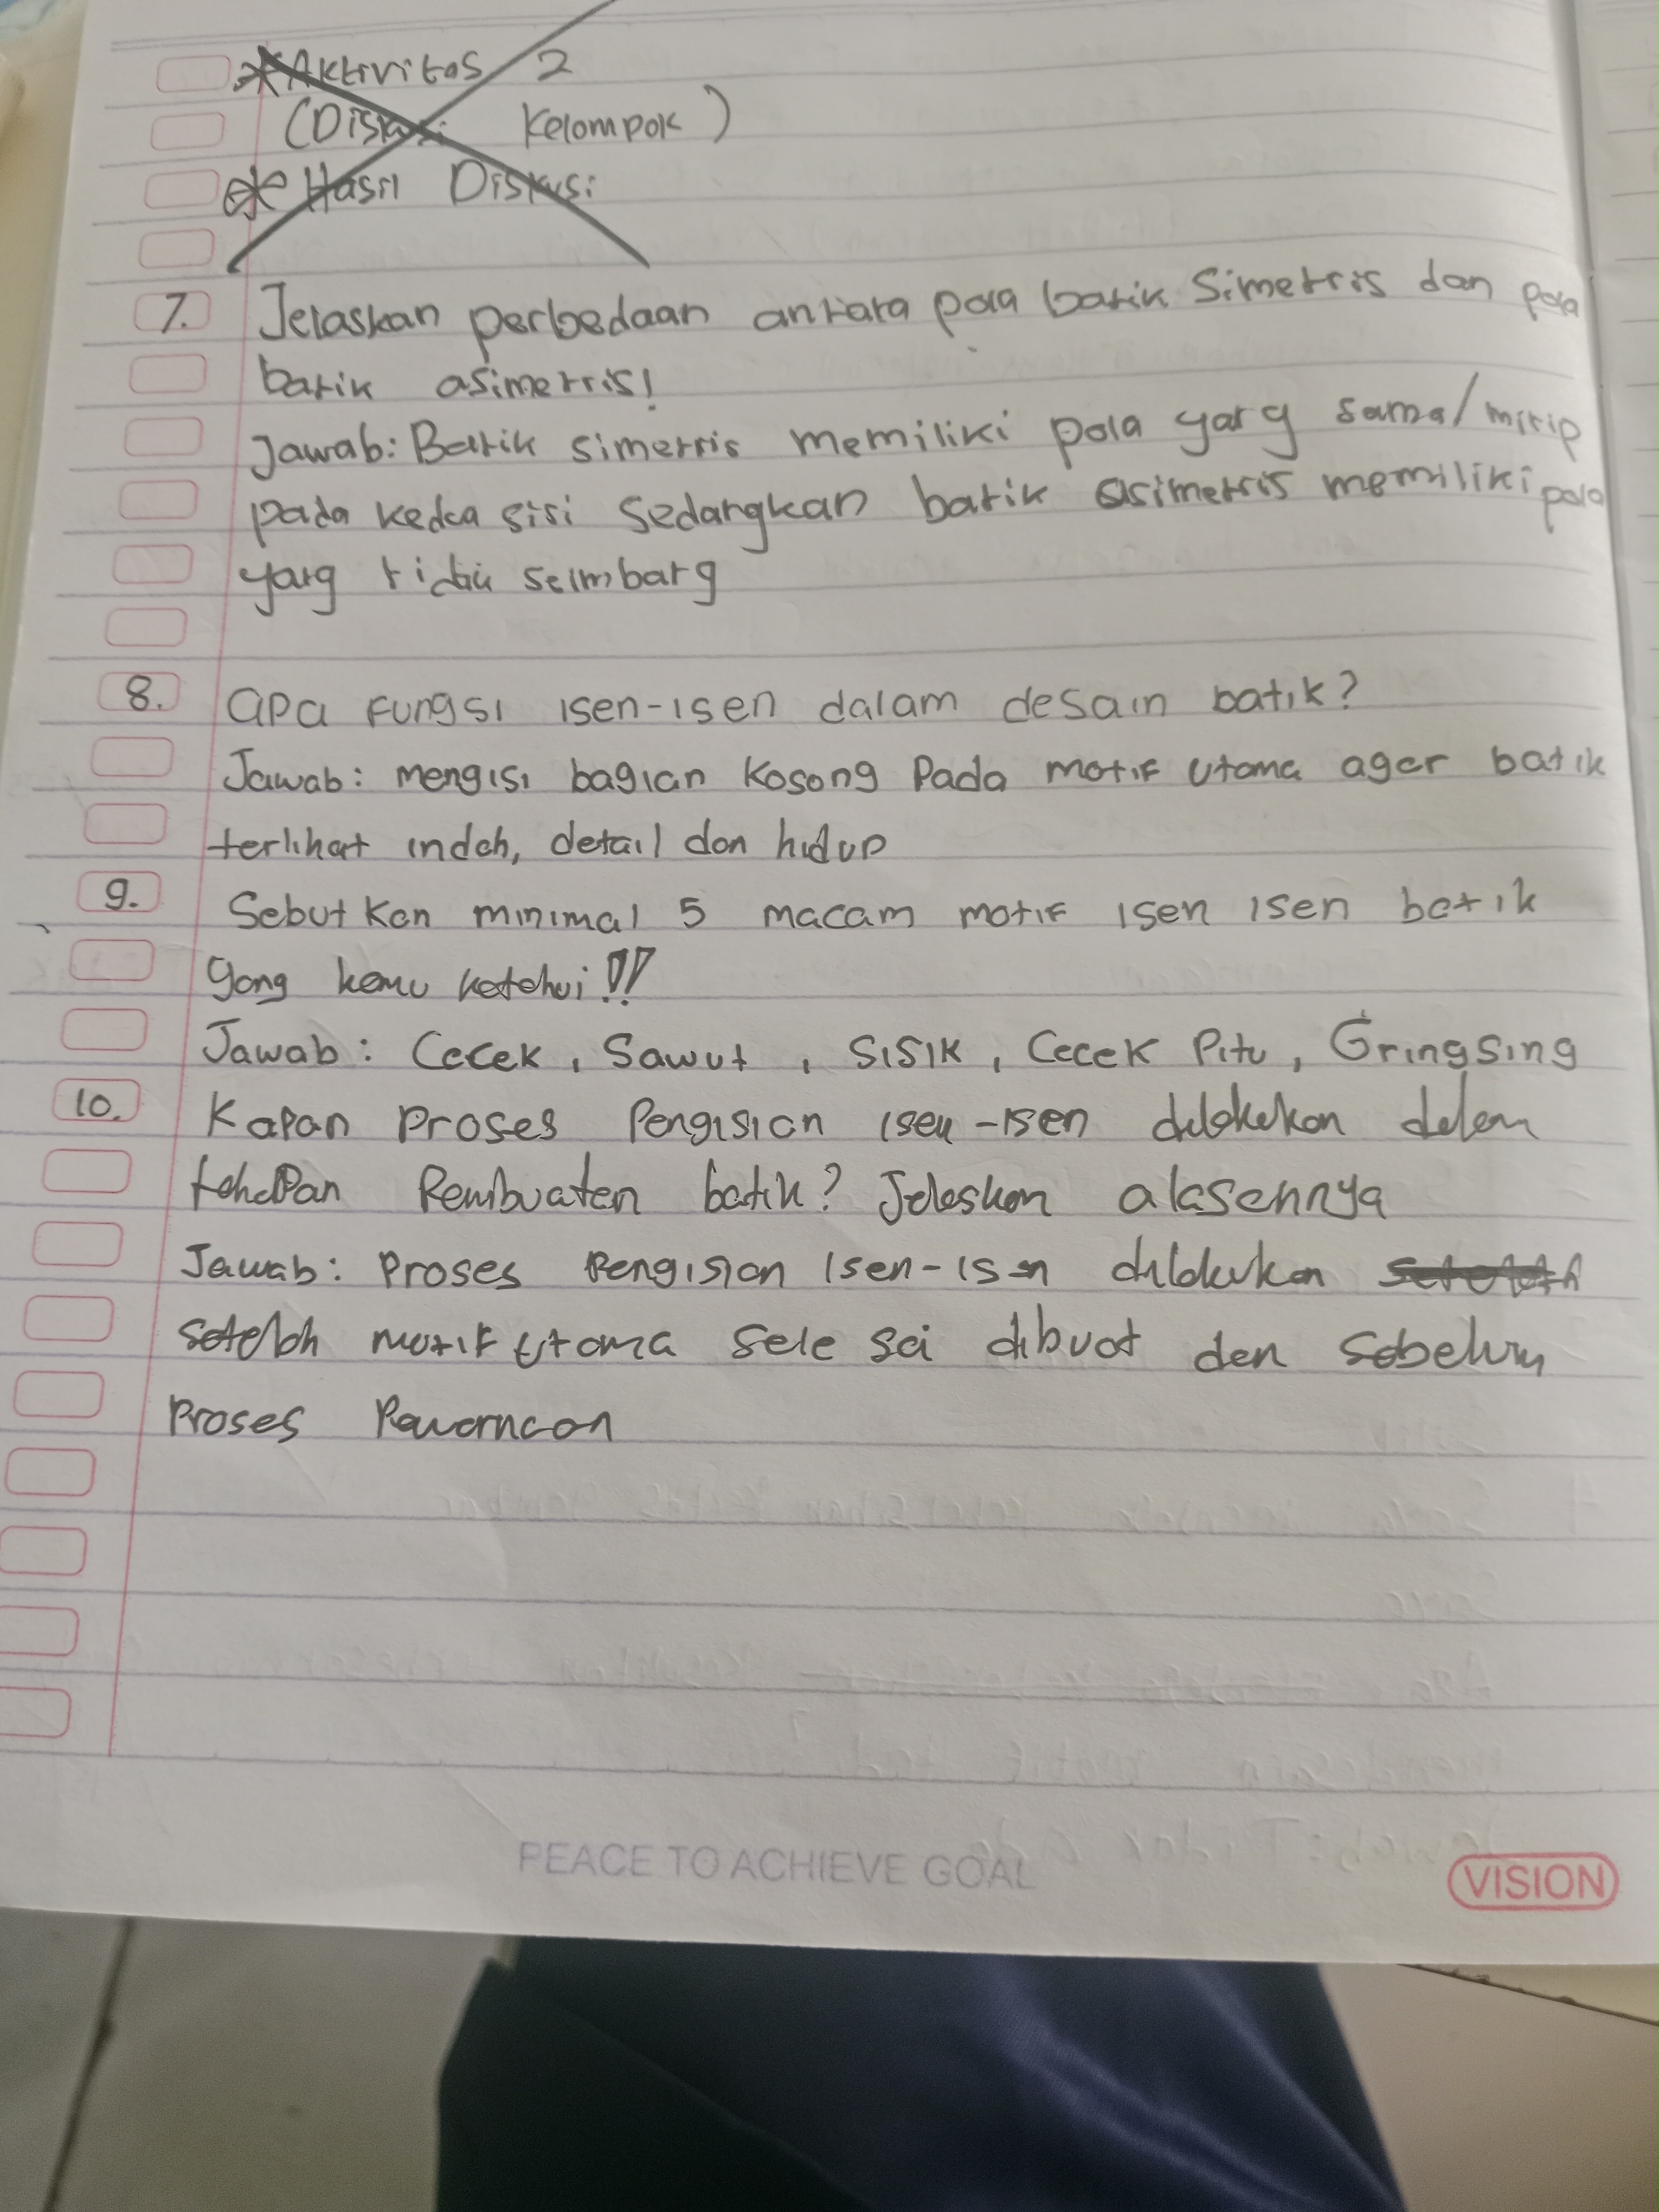 *Aktivitas 2
(Diskusi Kelompok)
* Hasil Diskusi
7. Jelaskan perbedaan antara pola batik Simetris dan pola
batik asimetris!
Jawab: Batik simetris memiliki pola yang sama/mirip
pada kedua sisi sedangkan batik asimetris memiliki pola
yang tidak seimbang
8. apa fungsi isen-isen dalam desain batik?
Jawab: mengisi bagian kosong pada motif utama agar batik
terlihat indah, detail dan hidup
9. Sebutkan minimal 5 macam motif isen isen batik
yang kamu ketahui!!!
Jawab: Cecek, Sawut, Sisik, Cecek Pitu, Gringsing
10. Kapan Proses Pengisian isen-isen dilakukan dalam
tahapan Pembuatan batik? Jelaskan alasannya
Jawab: Proses Pengisian Isen-isen dilakukan setelah
setelah motif utama selesai dibuat dan sebelum
Proses Pewarnaan
PEACE TO ACHIEVE GOAL
VISION